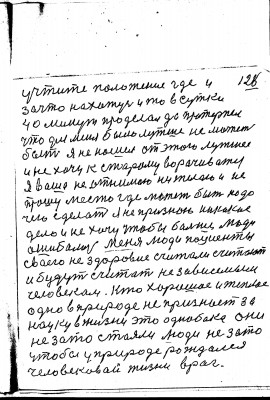 учтите положение где и 128
зачто нахожус и то в сутки
40 минут проделал до
что для меня было лутше не может
быть я не нашел от этого лутшее
и не хочу к старому ворачиватся
я ваше не отнимаю ни тело и не
прошу место где может быт надо
чего сделат я не признаю никакое
дело и не хочу чтобы люди
ошибалис меня люди пациенты
своего не здоровие считали считают
и будут считат не зависемым
человекам. Кто хорошае и теплае
одно в природе не признает за
науку в жизни это однобока они
не за то стояли люди не за то
чтобы у природе рождался
человековай жизни враг.